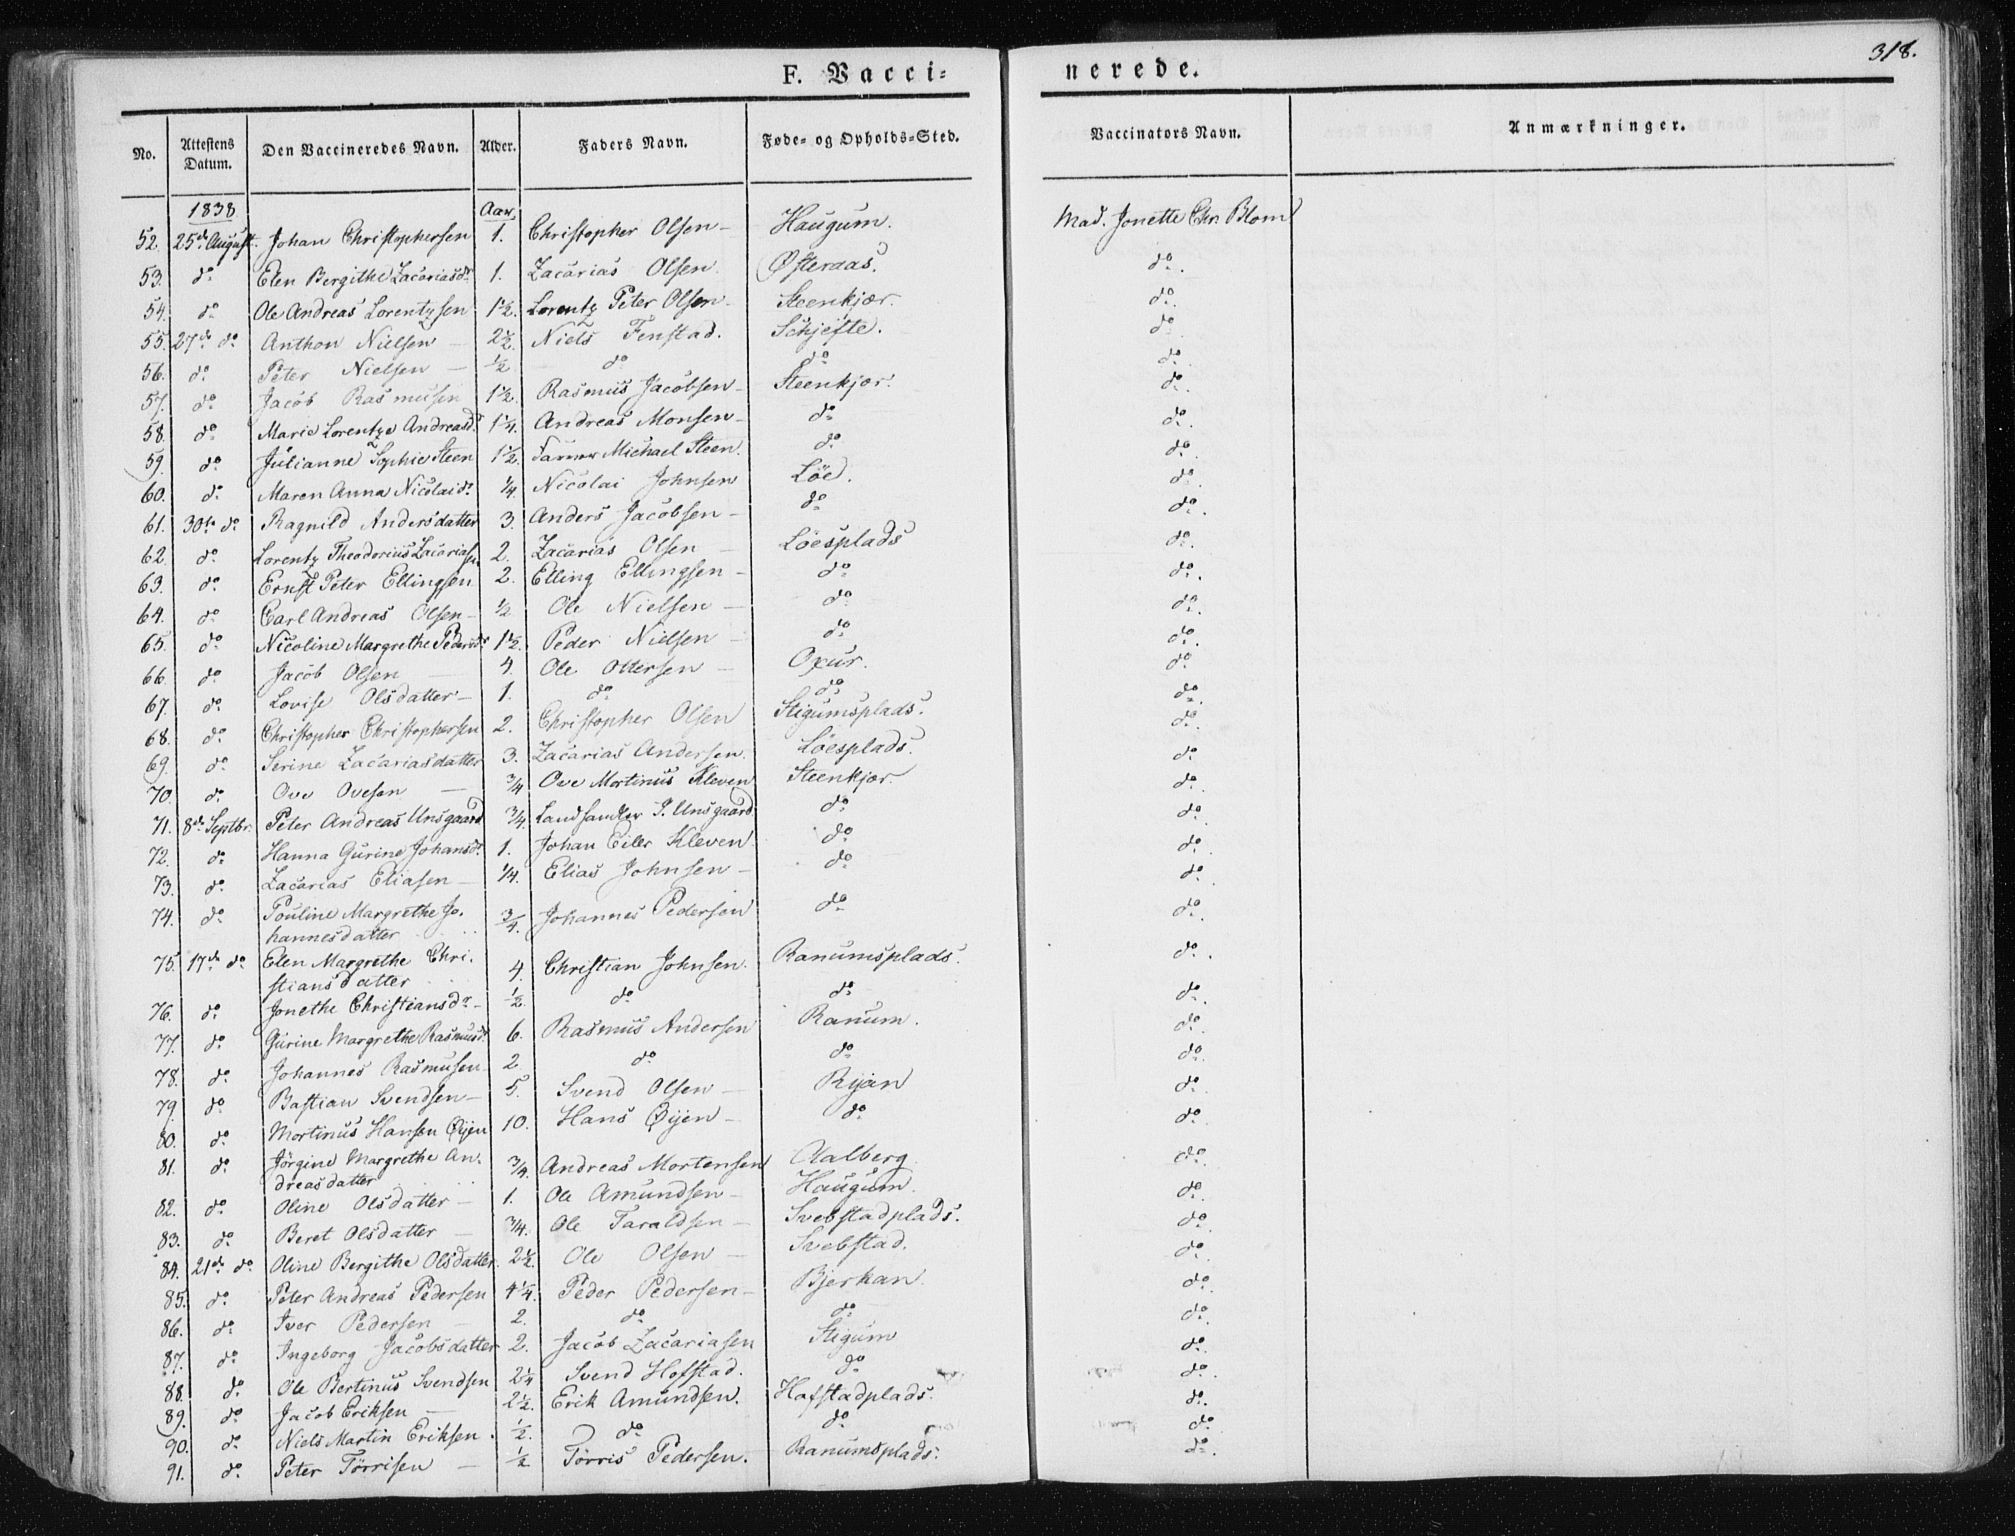 318.
F. Vacci= nerede.
No. Attestens Datum. Den Vaccineredes Navn. Alder. Faders Navn. Føde= og Opholds=Sted. Vaccinators Navn. Anmærkninger.
1838 Aar,
52. 25de August. Johan Christophersen 1. Christopher Olsen – Haugum. Mad. Jonette Chr. Blom
53. do Elen Bergithe Zacariasdr 1. Zacarias Olsen. Østeraas. do.
54. do Ole Andreas Lorentzsen 1½. Lorentz Peter Olsen – Steenkjær. do.
55. 27de do Anthon Nielsen – 2½. Niels Fenstad. Schjefte. do.
56. do Peter Nielsen – ½. do do do.
57. do Jacob Rasmusen 1½. Rasmus Jacobsen – Steenkjær. do.
58. do Marie Lorentze Andreasdr 1¼. Andreas Monsen – do do.
59. do Julianne Sophie Steen 1½. Farver Michael Steen. do do.
60. do Maren Anna Nicolaidr ¼. Nicolai Johnsen Löe. do.
61. 30te do Ragnild Andersdatter 3. Anders Jacobsen – do do.
62. do Lorentz Theodorius Zacariasen 2. Zacarias Olsen – Löesplads do.
63. do Ernst Peter Ellingsen 2. Elling Ellingsen – do do.
64. do Carl Andreas Olsen – ½ Ole Nielsen – do do.
65. do Nicoline Margrethe Pedersdr 1½. Peder Nielsen – do do.
66. do Jacob Olsen – 4. Ole Ottersen – Oxur. do
67. do Lovise Olsdatter – 1. do do. do.
68. do Christopher Christophersen 2. Christopher Olsen Stigumsplads. do.
69. do Serine Zacariasdatter 3. Zacarias Andersen. Löesplads. do
70. do Ove Ovesen – ¾ Ove Mortinus Kleven Steenkjær do.
71. 8de Septbr. Peter Andreas Unsgaard ¾. Landhandler P. Unsgaard do do.
72. do Hanna Gurine Johansdr 1. Johan Eiler Kleven. do do.
73. do Zacarias Eliasen – ¼. Elias Johnsen – do do.
74. do Pouline Margrethe Jo-
hannesdatter ¾. Johannes Pedersen do do.
75. 17de do Elen Margrethe Chri-
stiansdatter 4. Christian Johnsen. Ranumsplads. do.
76. do Jonethe Christiansdr – ½. do do do.
77. do Gurine Margrethe Rasmusdr 6. Rasmus Andersen Ranum. do.
78. do Johannes Rasmusen 2. do do do.
79. do Bastian Svendsen – 5. Svend Olsen – Ryan do.
80. do Mortinus Hansen Øyen 10. Hans Øyen – do do.
81. do Jørgine Margrethe An-
dreasdatter ¾. Andreas Mortensen Aalberg. do.
82. do Oline Olsdatter – 1. Ole Amundsen – Haugum. do.
83. do Beret Olsdatter – ¾. Ole Taraldsen – Svebstadplads. do.
84. 21de do Oline Bergithe Olsdatter. 2½. Ole Olsen – Svebstad. do.
85. do Peter Andreas Pedersen 4¼. Peder Pedersen – Bjerkan. do.
86. do Iver Pedersen – 2. do do do.
87. do Ingeborg Jacobsdatter 2. Jacob Zacariasen Stigum do.
88. do Ole Bertinus Svendsen 2¼ Svend Hofstad. do do.
89. do Jacob Eriksen – 2½. Erik Amundsen. Hofstadplads. do.
90. do Niels Martin Eriksen. ½. do do do.
91. do Peter Törrisen – ½ Törris Pedersen. Ranumsplads. do.